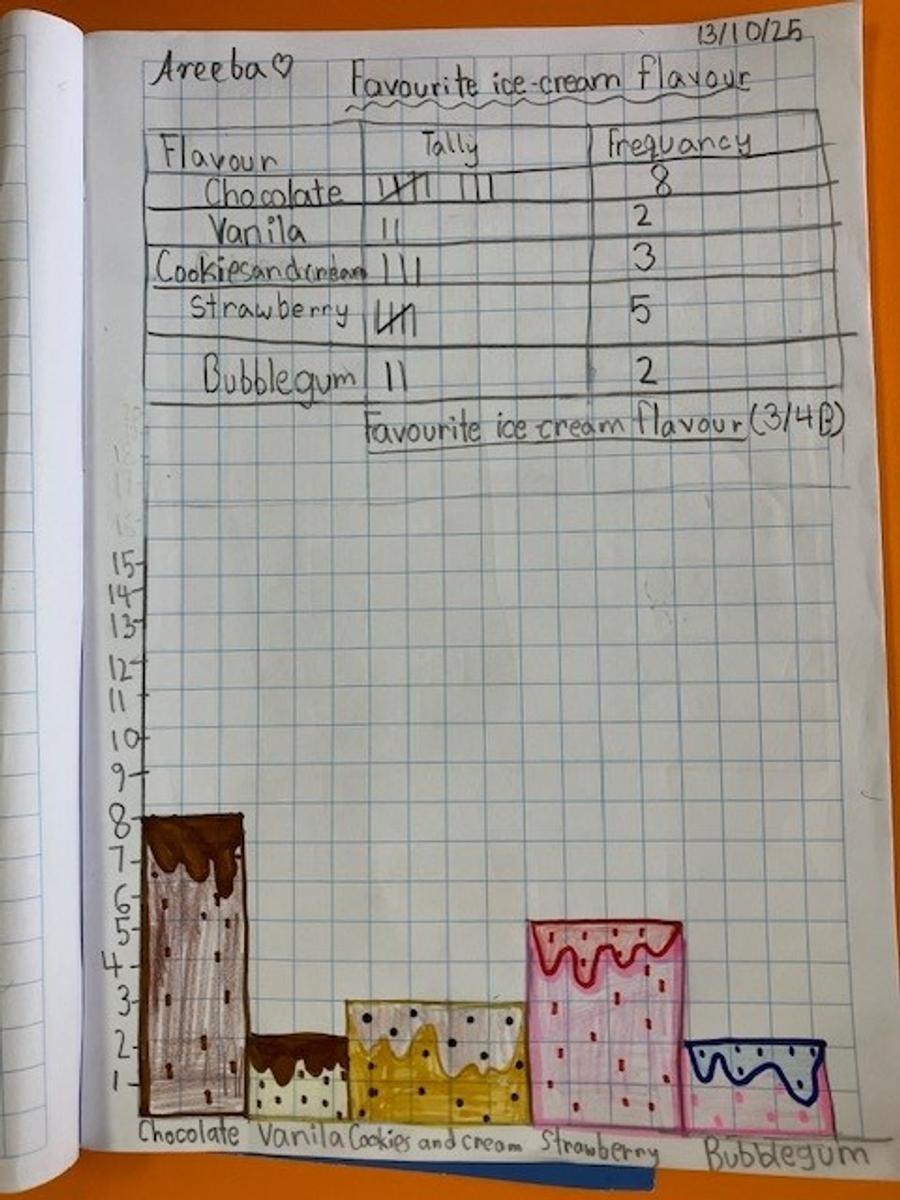 13/10/25
Areeba♡ Favourite ice-cream flavour
Flavour Tally Frequancy
Chocolate 8
Vanila 2
Cookiesandcream 3
Strawberry 5
Bubblegum 2
Favourite ice cream flavour (3/4B)
15
14
13
12
11
10
9
8
7
6
5
4
3
2
1
Chocolate Vanila Cookies and cream Strawberry Bubblegum